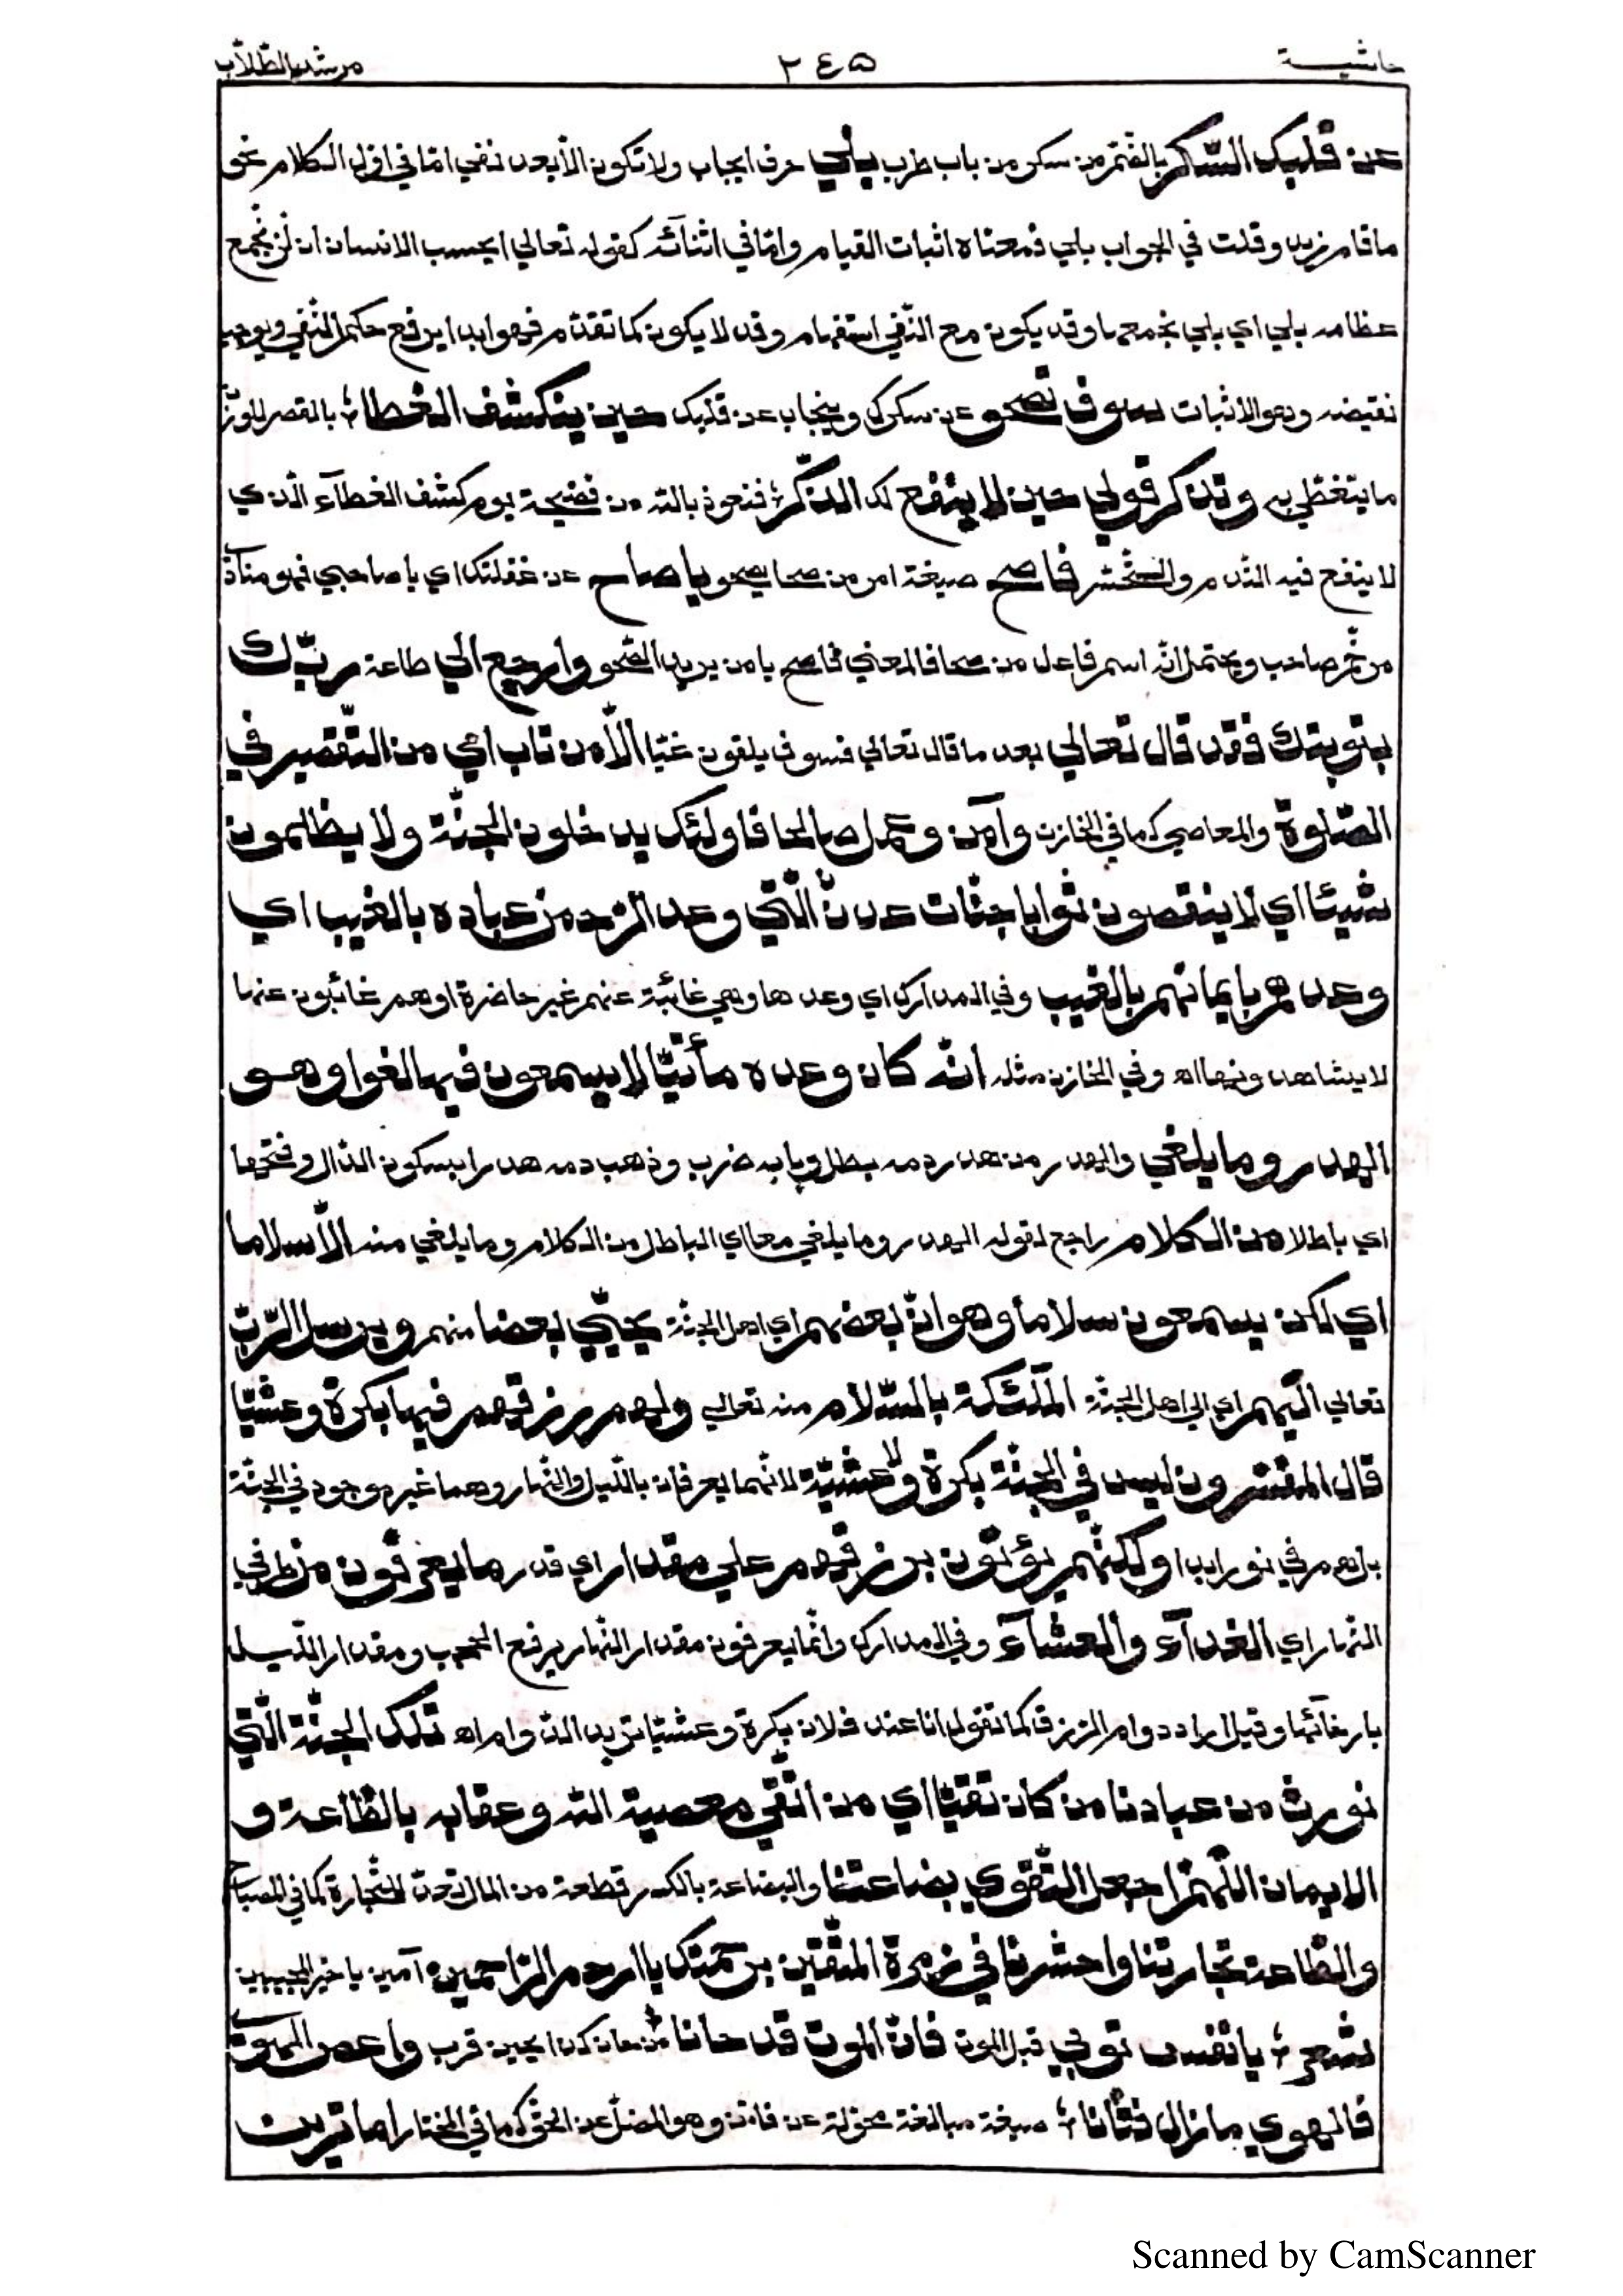 حاشية ٢٤٥ مرشد الطّلاّب
عن قلبك السّكر بالضّم من سكر من باب طرب بلي حرف ايجاب ولا تكون الاّ بعد نفي امّا في اوّل الكلام نحو
ما قام زيد وقلت في الجواب بلي فمعناه اثبات القيام وامّا في اثنائه كقوله تعالي ايحسب الانسان ان لن نجمع
عظامه بلي اي بلي نجمعها وقد يكون مع النّفي استفهام وقد لا يكون كما تقدّم فهو ابدا يرفع حكم النّفي ويوجب
نقيضه وهو الاثبات سوف تصحو عن سكرك وينجاب عن قلبك حين ينكشف الغطا؛ بالقصر للوزن
ما يتغطّي به وتذكر قولي حين لا ينفع لك الذّكر؛ فنعوذ بالله من فضيحة يوم كشف الغطآء الّذي
لا ينفع فيه النّدم والتّحسّر فاصح صيغة امر من صحا يصحو يا صاح عن غفلتك اي يا صاحبي فهو منادي
مرخّم صاحب ويحتمل انّه اسم فاعل من صحا فالمعني فاصح يا من يريد الصّحو وارجع الي طاعة ربّك
بتوبتك فقد قال تعالي بعد ما قال تعالي فسوف يلقون غيّا الاّ من تاب اي من التّقصير في
الصّلوة والمعاصي كما في الخازن وآمن وعمل صالحا فاولئك يدخلون الجنّة ولا يظلمون
شيئا اي لا ينقصون ثوابا جنّات عدن الّتي وعد الرّحمن عباده بالغيب اي
وعدهم بايمانهم بالغيب وفي المدارك اي وعدها وهي غائبة عنهم غير حاضرة او هم غائبون عنها
لا يشاهدونها اه وفي الخازن مثله انّه كان وعده مأتيّا لا يسمعون فيها لغوا وهو
الهدر وما يلغي والهدر من هدر دمه بطل وبابه ضرب وذهب دمه هدرا بسكون الدّال وفتحها
اي باطلا من الكلام راجع لقوله الهدر وما يلغي معا اي الباطل من الكلام وما يلغي منه الاّ سلاما
اي لكن يسمعون سلاما وهو انّ بعضهم اي اهل الجنّة يحيّي بعضا منهم ويرسل الرّبّ
تعالي اليهم اي الي اهل الجنّة الملئكة بالسّلام منه تعالي ولهم رزقهم فيها بكرة وعشيّا
قال المفسّرون ليس في الجنّة بكرة ولا عشيّة لانّهما يعرفان باللّيل والنّهار وهما غير موجود في الجنّة
بل هم في نور ابدا ولكنّهم يؤتون برزقهم علي مقدار اي قدر ما يعرفون من طرفي
النّهار اي الغدآء والعشآء وفي المدارك وانّما يعرفون مقدار النّهار برفع الحجب ومقدار اللّيل
بارخآئها وقيل اراد دوام الرّزق كما تقول انا عند فلان بكرة وعشيّا تريد الدّوام اه تلك الجنّة الّتي
نورث من عبادنا من كان تقيّا اي من اتّقي معصية الله وعقابه بالطّاعة و
الايمان اللّهمّ اجعل التّقوي بضاعتنا والبضاعة بالكسر قطعة من المال تعدّ للتّجارة كما في المصباح
والطّاعة تجارتنا واحشرنا في زمرة المتّقين برحمتك يا ارحم الرّاحمين؛ آمين يا خير المجيبين
شعر؛ يا نفس توبي قبل الموت فانّ الموت قد حانا؛ من حان كذا يحين قرب واعص الهوي
فالهوي ما زال فتّانا؛ صيغة مبالغة محوّلة عن فاتن وهو المضلّ عن الحقّ كما في المختار اما ترين
Scanned by CamScanner